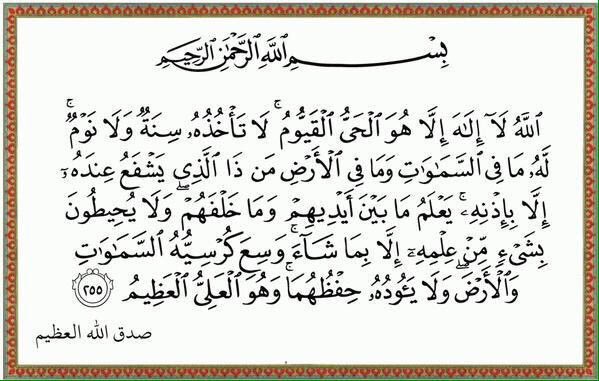 بِسْمِ اللَّهِ الرَّحْمَٰنِ الرَّحِيمِ
اللَّهُ لَآ إِلَٰهَ إِلَّا هُوَ الْحَيُّ الْقَيُّومُ ۚ لَا تَأْخُذُهُۥ سِنَةٌ وَلَا نَوْمٌ ۚ
لَّهُۥ مَا فِي السَّمَٰوَٰتِ وَمَا فِي الْأَرْضِ ۗ مَن ذَا الَّذِي يَشْفَعُ عِندَهُۥٓ
إِلَّا بِإِذْنِهِۦ ۚ يَعْلَمُ مَا بَيْنَ أَيْدِيهِمْ وَمَا خَلْفَهُمْ ۖ وَلَا يُحِيطُونَ
بِشَيْءٍ مِّنْ عِلْمِهِۦٓ إِلَّا بِمَا شَآءَ ۚ وَسِعَ كُرْسِيُّهُ السَّمَٰوَٰتِ
وَالْأَرْضَ ۖ وَلَا يَـُٔودُهُۥ حِفْظُهُمَا ۚ وَهُوَ الْعَلِيُّ الْعَظِيمُ ٢٥٥
صدق الله العظيم